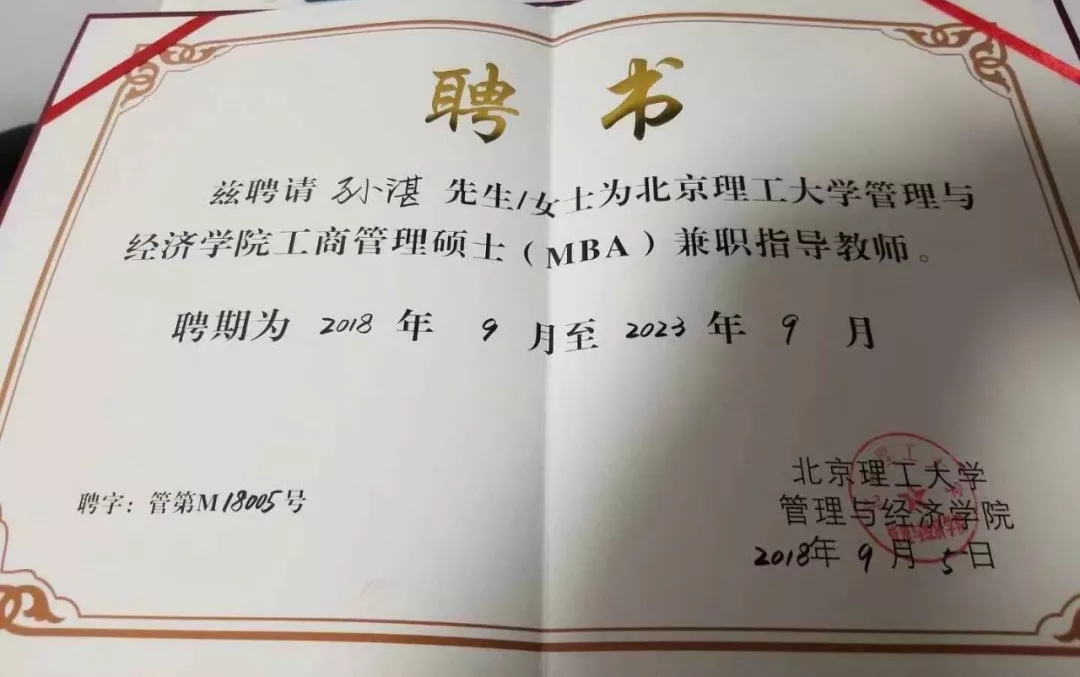 聘书
兹聘请 孙湛 先生/女士为北京理工大学管理与
经济学院工商管理硕士（MBA）兼职指导教师。
聘期为 2018 年 9 月至 2023 年 9 月
聘字：管第M18005号
北京理工大学
管理与经济学院
2018年 9 月 5 日